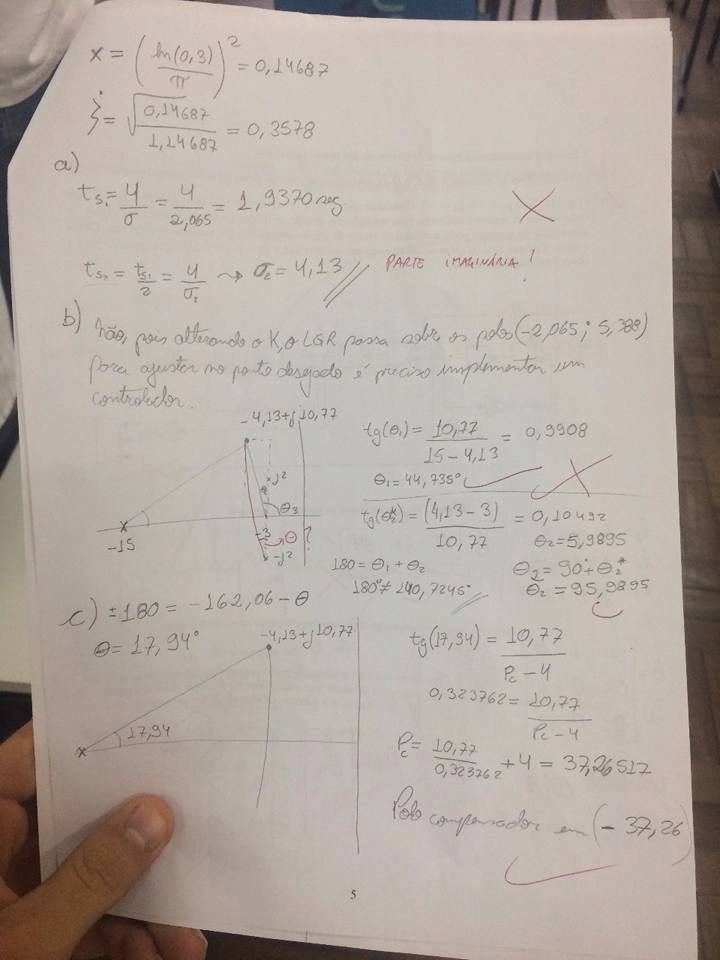 x = (ln(0,3)/π)² = 0,14687
ξ = √(0,14687/1,14687) = 0,3578
a)
ts₁ = 4/σ = 4/2,065 = 1,9370 seg
ts₂ = ts₁/2 = 4/σ₂ ⤳ σ₂ = 4,13 // PARTE IMAGINÁRIA!
b) Não, pois alterando o K, o LGR passa sobre os polos (-2,065; 5,388)
para ajustar no ponto desejado é preciso implementar um
controlador.
-4,13+j10,77
-15
j2
θ₃
-3
θ?
-j2
tg(θ₁) = 10,77/(15-4,13) = 0,9908
θ₁ = 44,735°
tg(θ₂*) = (4,13-3)/10,77 = 0,10492
θ₂ = 5,9895
θ₂ = 90° + θ₂*
θ₂ = 95,9895
180 = θ₁ + θ₂
180° ≠ 140,7245° //
c) ±180 = -162,06 - θ
θ = 17,94°
-4,13+j10,77
17,94
tg(17,94) = 10,77/(Pc-4)
0,323762 = 10,77/(Pc-4)
Pc = 10,77/0,323762 + 4 = 37,26517
Polo compensador em (-37,26)
5